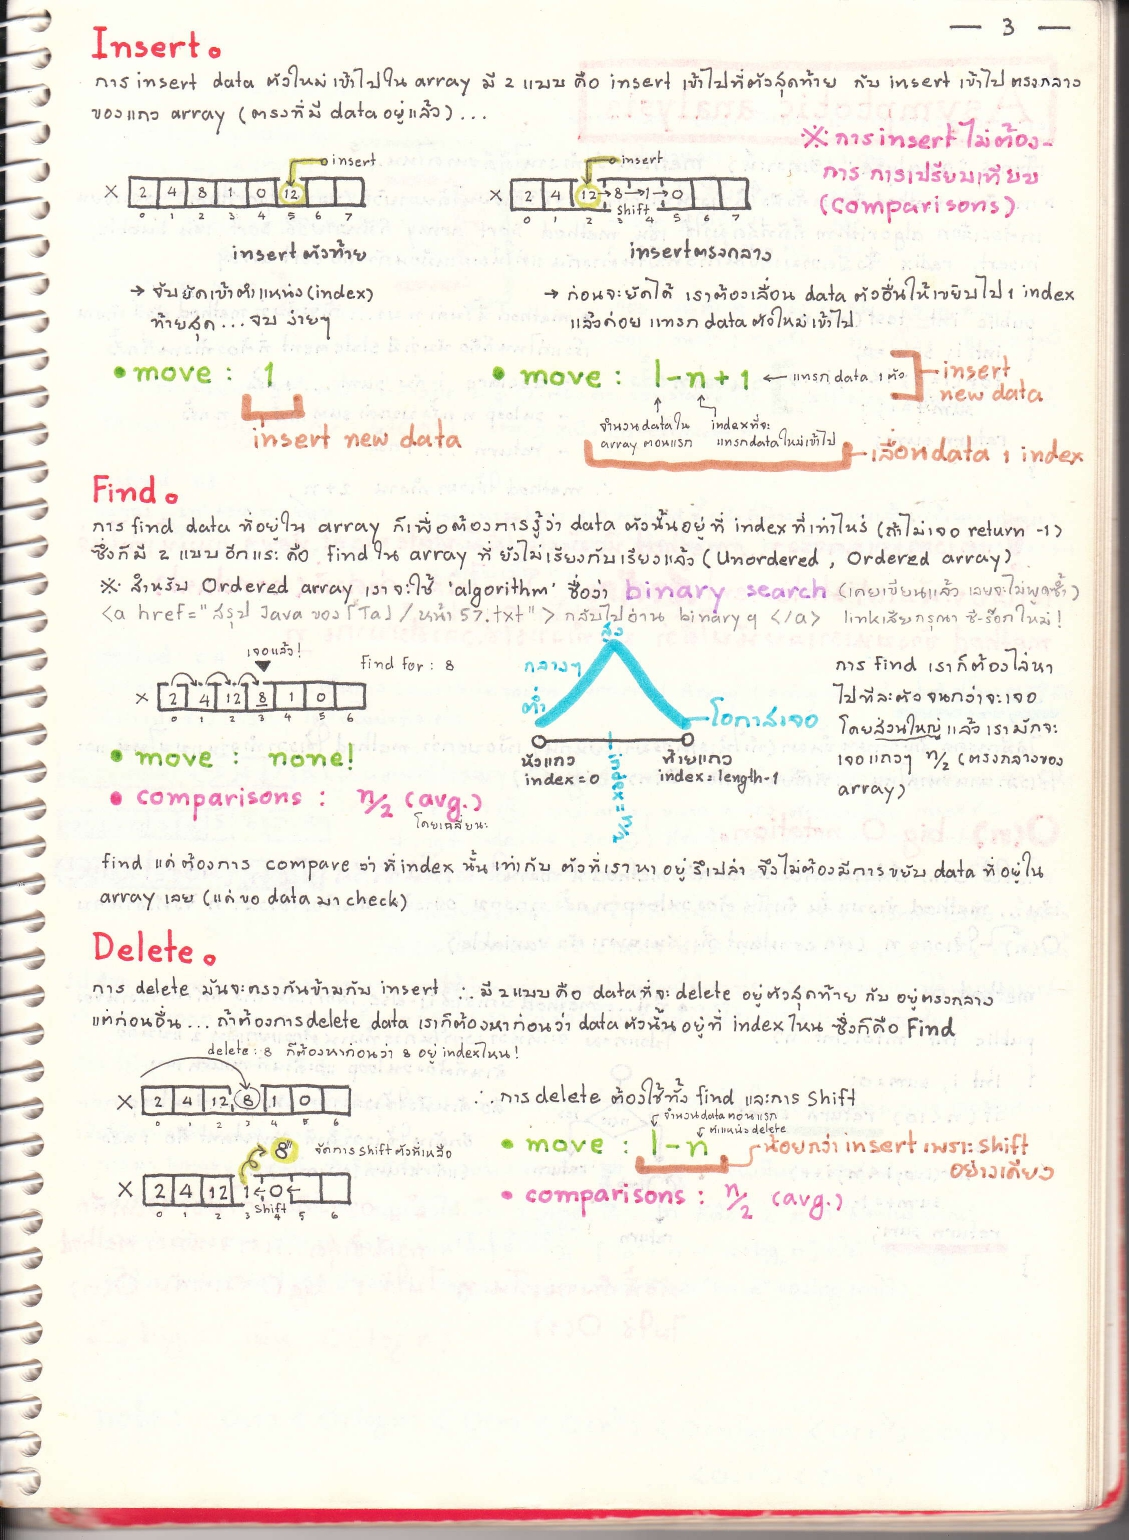 — 3 —
Insert.
การ insert data ตัวใหม่เข้าไปใน array มี 2 แบบ คือ insert เข้าไปที่ตัวสุดท้าย กับ insert เข้าไปตรงกลาง
ของแถว array (ตรงที่มี data อยู่แล้ว)...
※ การ insert ไม่ต้อง-
การ การเปรียบเทียบ
(comparisons)
insert
X 2 4 8 1 0 12
0 1 2 3 4 5 6 7
insert ตัวท้าย
→ จับยัดเข้าตำแหน่ง (index)
ท้ายสุด...จบ ง่ายๆ
• move : 1
insert new data
insert
X 2 4 12→8→1→0
0 1 2 3 4 5 6 7
shift
insert ตรงกลาง
→ ก่อนจะยัดได้ เราต้องเลื่อน data ตัวอื่นให้เขยิบไป 1 index
แล้วค่อย แทรก data ตัวใหม่เข้าไป
• move : l-n+1 ← แทรก data 1 ตัว
insert
new data
จำนวน data ใน
array ตอนแรก
index ที่จะ
แทรก data ใหม่เข้าไป
เลื่อน data 1 index
Find.
การ find data ที่อยู่ใน array ก็เพื่อต้องการรู้ว่า data ตัวนั้นอยู่ที่ index ที่เท่าไหร่ (ถ้าไม่เจอ return -1)
ซึ่งก็มี 2 แบบอีกแระ คือ find ใน array ที่ ยังไม่เรียงกับเรียงแล้ว (Unordered , Ordered array)
※ สำหรับ Ordered array เราจะใช้ 'algorithm' ชื่อว่า binary search (เคยเขียนแล้ว เลยจะไม่พูดซ้ำ)
<a href="สรุป Java ของ「Ta」/หน้า 57.txt" > กลับไปอ่าน binary ๆ </a> link เสียกรุณา ซี-ร็อกใหม่ !
เจอแล้ว!
find for : 8
X 2 4 12 8 1 0
0 1 2 3 4 5 6
• move : none!
• comparisons : n/2 (avg.)
โดยเฉลี่ยนะ
สูง
กลางๆ
ต่ำ
โอกาสเจอ
หัวแถว
index=0
index = n/2
ท้ายแถว
index=length-1
การ find เราก็ต้องไล่หา
ไปทีละตัว จนกว่าจะเจอ
โดยส่วนใหญ่ แล้ว เรามักจะ
เจอแถวๆ n/2 (ตรงกลางของ
array)
find แค่ต้องการ compare ว่า ที่ index นั้น เท่ากับ ตัวที่เราหา อยู่รึเปล่า จึงไม่ต้องมีการ ขยับ data ที่อยู่ใน
array เลย (แค่ขอ data มา check)
Delete.
การ delete มันจะตรงกันข้ามกับ insert ∴ มี 2 แบบ คือ data ที่จะ delete อยู่ตัวสุดท้าย กับ อยู่ตรงกลาง
แต่ก่อนอื่น... ถ้าต้องการ delete data เราก็ต้องหาก่อนว่า data ตัวนั้น อยู่ที่ index ไหน ซึ่งก็คือ Find
delete : 8 ก็ต้องหาก่อนว่า 8 อยู่ index ไหน !
X 2 4 12 8 1 0
0 1 2 3 4 5 6
8"
จัดการ shift ตัวที่เหลือ
X 2 4 12 1←0←
0 1 2 3 4 5 6
shift
∴ การ delete ต้องใช้ทั้ง find และการ Shift
จำนวน data ตอนแรก
ตำแหน่ง delete
• move : l-n
น้อยกว่า insert เพราะ shift
อย่างเดียว
• comparisons : n/2 (avg.)